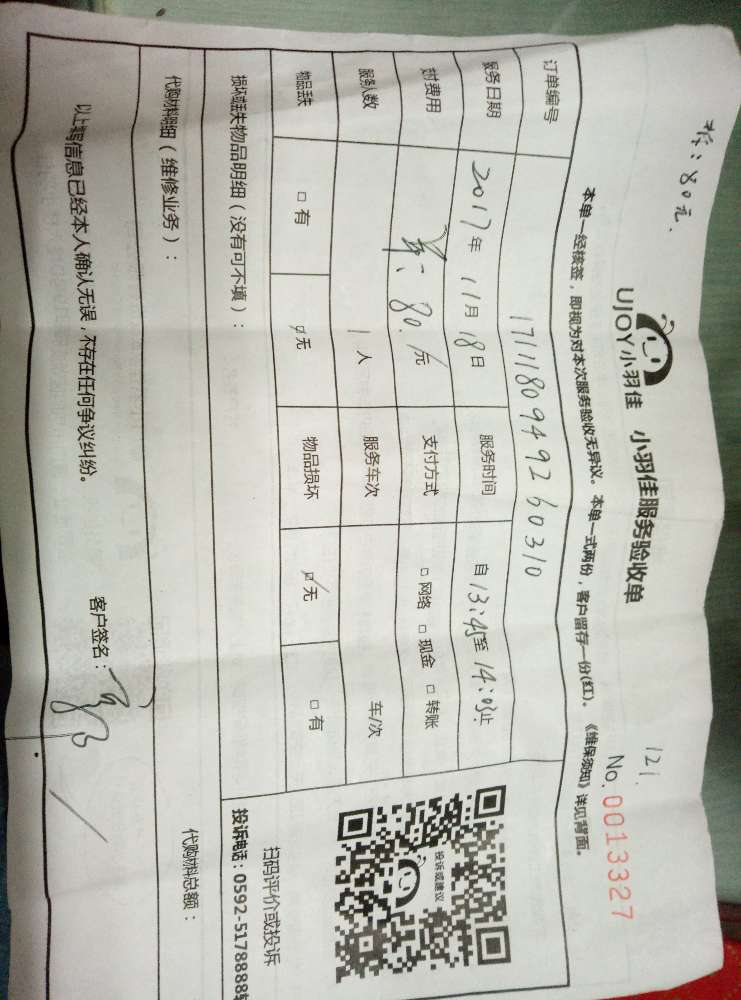 121.
UJOY小羽佳 小羽佳服务验收单
No. 0013327
:80元.
本单一经核签,即视为对本次服务验收无异议。本单一式两份,客户留存一份(红)。《维保须知》详见背面。
订单编号 171118094926 0310
服务日期 2017年 11月 18日 服务时间 自13:45至14:03止
费用 80.元 支付方式 □网络 □现金 □转账
服务人数 1人 服务车次 车/次
物品丢失 □有 ☑无 物品损坏 ☑无 □有
损坏或丢失物品明细(没有可不填):
投诉或建议
扫码评价或投诉
投诉电话:0592-5178888
代购材料明细(维修业务): 代购材料总额:
以上填写信息已经本人确认无误,不存在任何争议纠纷。 客户签名: